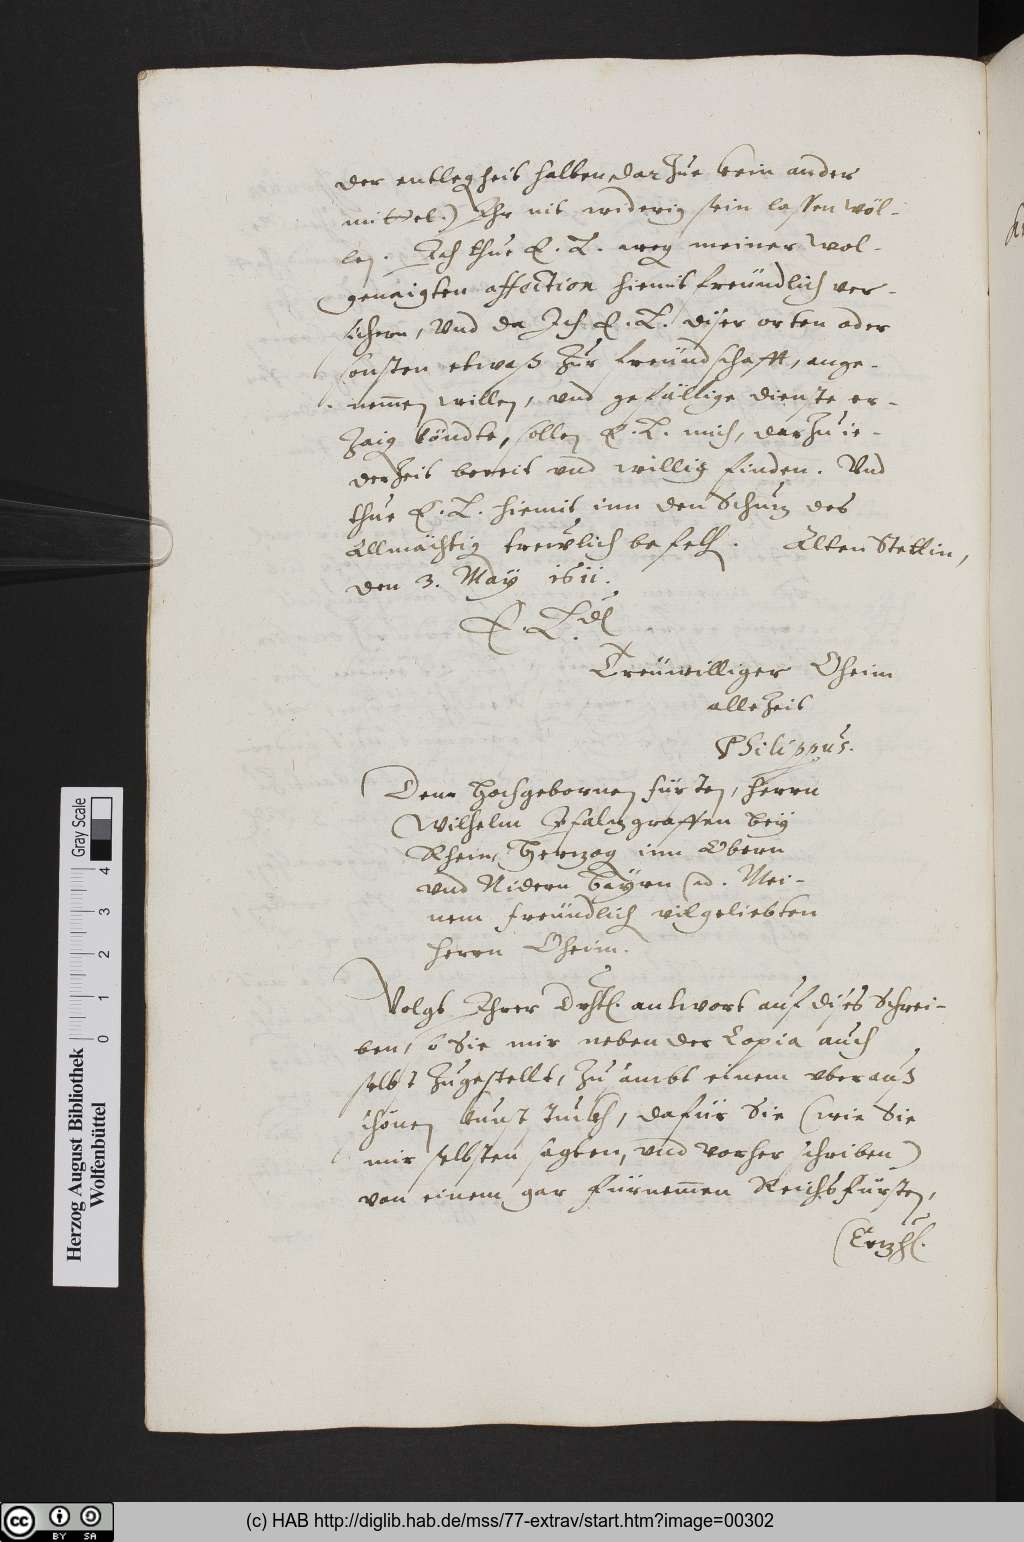 der entlegheit halben, darzue kein ander
mittel.) Ihr nit widerig sein lassen wöl-
len. Ich thue E. L. weg meiner wol-
genaigten affection hiemit freündlich ver-
sichern, Vnd da Ich E. L. diser orten oder
sonsten etwaß zur freündschafft, ange-
nemen willen, vnd gefällige dienste er-
zaig köndte, sollen E. L. mich, darzu ie-
derzeit bereit vnd willig finden. Vnd
thue E. L. hiemit inn den Schutz des
Allmächtig trewlich befelh. Alten Stettin,
den 3. May 1611.
E. L.
Treüwilliger Oheim
allezeit
Philippus.
Dem Hochgebornen fürsten, herrn
Wilhelm Pfaltzgraffen bey
Rhein, Hertzog inn Obern
vnd Nidern Bayrn Mei-
nem freündlich vilgeliebten
herrn Oheim.
Volgt Ihrer Drhtl. antwort auf dises Schrei-
ben, so Sie mir neben der Copia auch
selbst zugestellt, zu sambt einem vberauß
schönen kunst stuckh, dafür Sie (wie Sie
mir selbsten sagten, vnd vorher schriben)
von einem gar fürnemen Reichsfürsten,
(c) HAB http://diglib.hab.de/mss/77-extrav/start.htm?image=00302
Herzog August Bibliothek
Wolfenbüttel
0 1 2 3 4
Gray Scale
cc BY SA